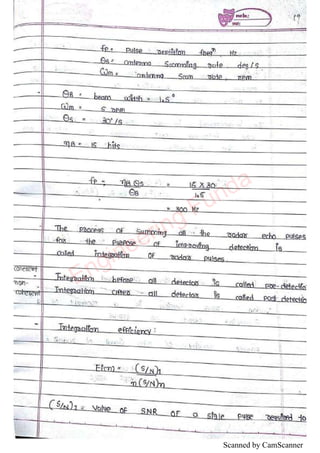 19
fp = Pulse repetition freqⁿ Hz
θs = antenna Scanning rate deg/s
ωm = antenna Scan rate rpm
- θB = beam width = 1.5°
ωm = 5 rpm
θs = 30°/s
ηB = 15 hits
fp = ηB θs = 15 X 30
θB 1.5
= 300 Hz
- The Process of Summing all the radar echo pulses
for the purpose of improving detection is
called integration of radar pulses.
coherent - Integration before all detector is called pre-detection
non- - Integration after all detector is called post detection
coherent
- Integration efficiency :
Ei(n) = (S/N)1
n (S/N)n
(S/N)1 = Value of SNR of a single pulse required to
Engineering Funda
Scanned by CamScanner